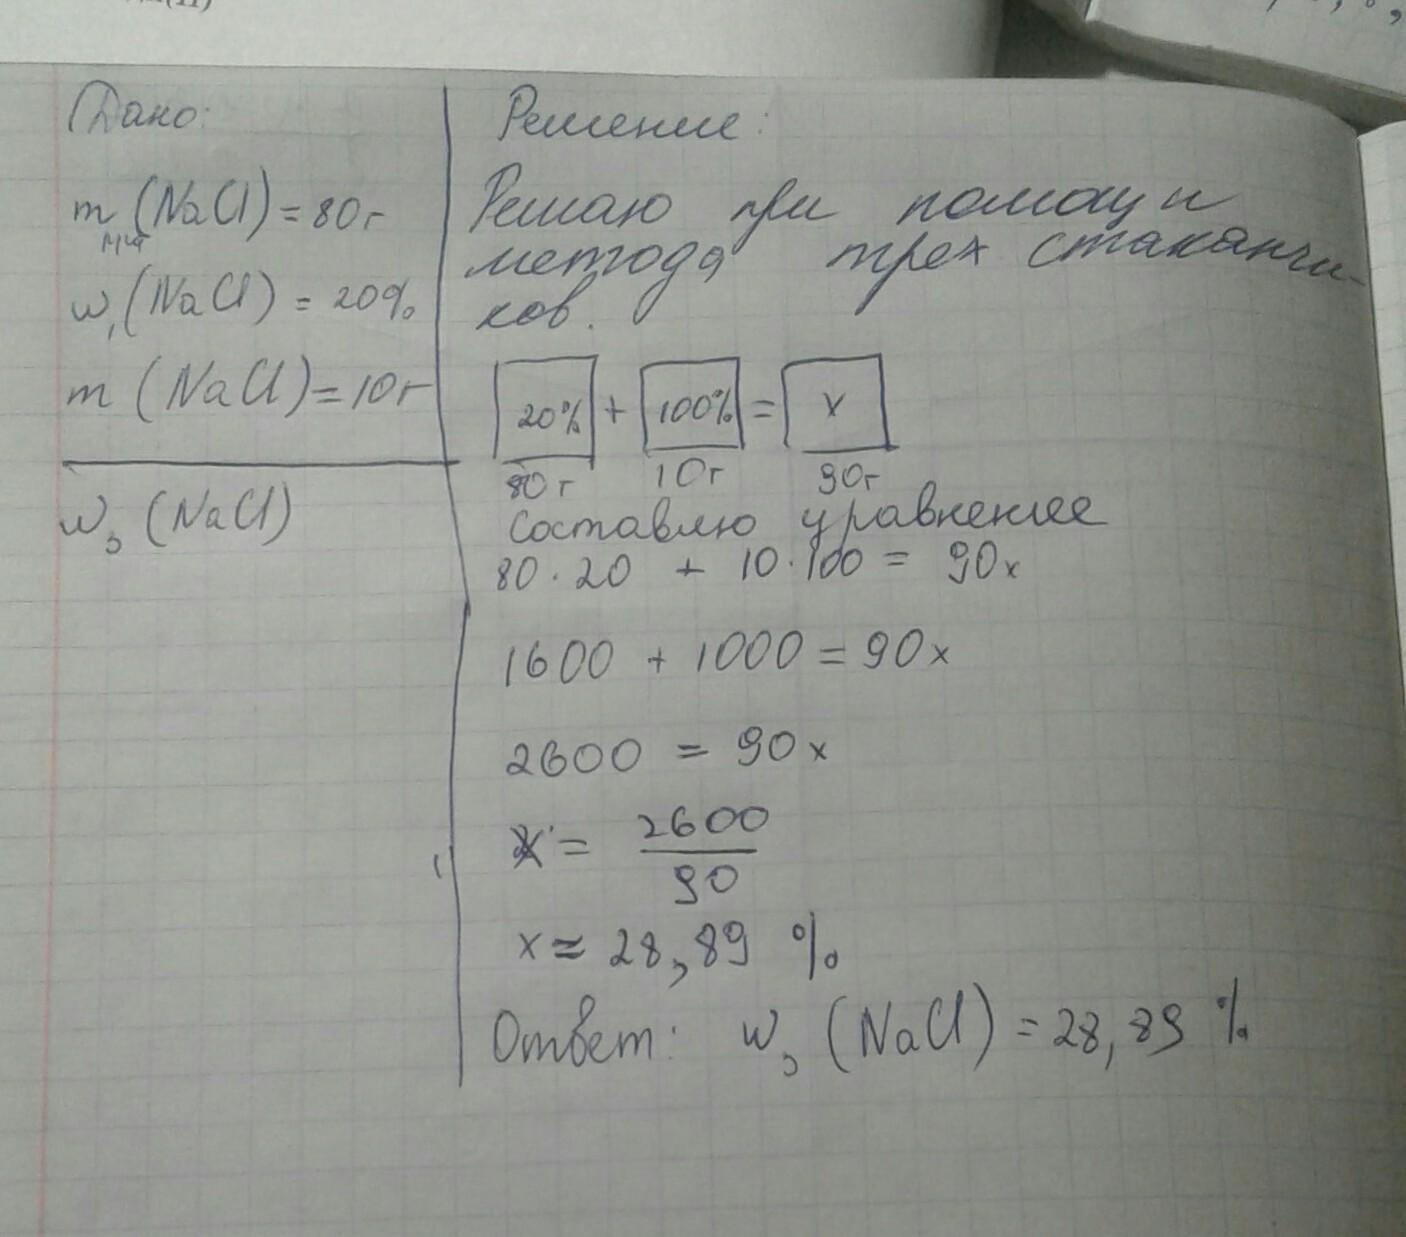 Дано:
m (NaCl) = 80г
w₁ (NaCl) = 20%
m (NaCl) = 10г
w₃ (NaCl)
Решение:
Решаю при помощи
метода трех стаканчи-
ков.
20% + 100% = x
80г 10г 90г
Составлю уравнение
80·20 + 10·100 = 90x
1600 + 1000 = 90x
2600 = 90x
x = 2600/90
x ≈ 28,89 %
Ответ: w₃ (NaCl) = 28,89 %